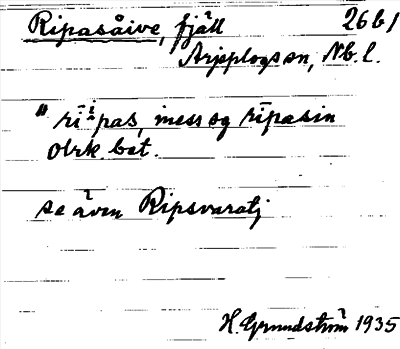 Ripasåive, fjäll 26b1
Arjeplogs sn, Nb. l.
" rīi̯pas, iness og rīpasin
obrk. bet.
se även Ripsvaratj
H. Grundström 1935